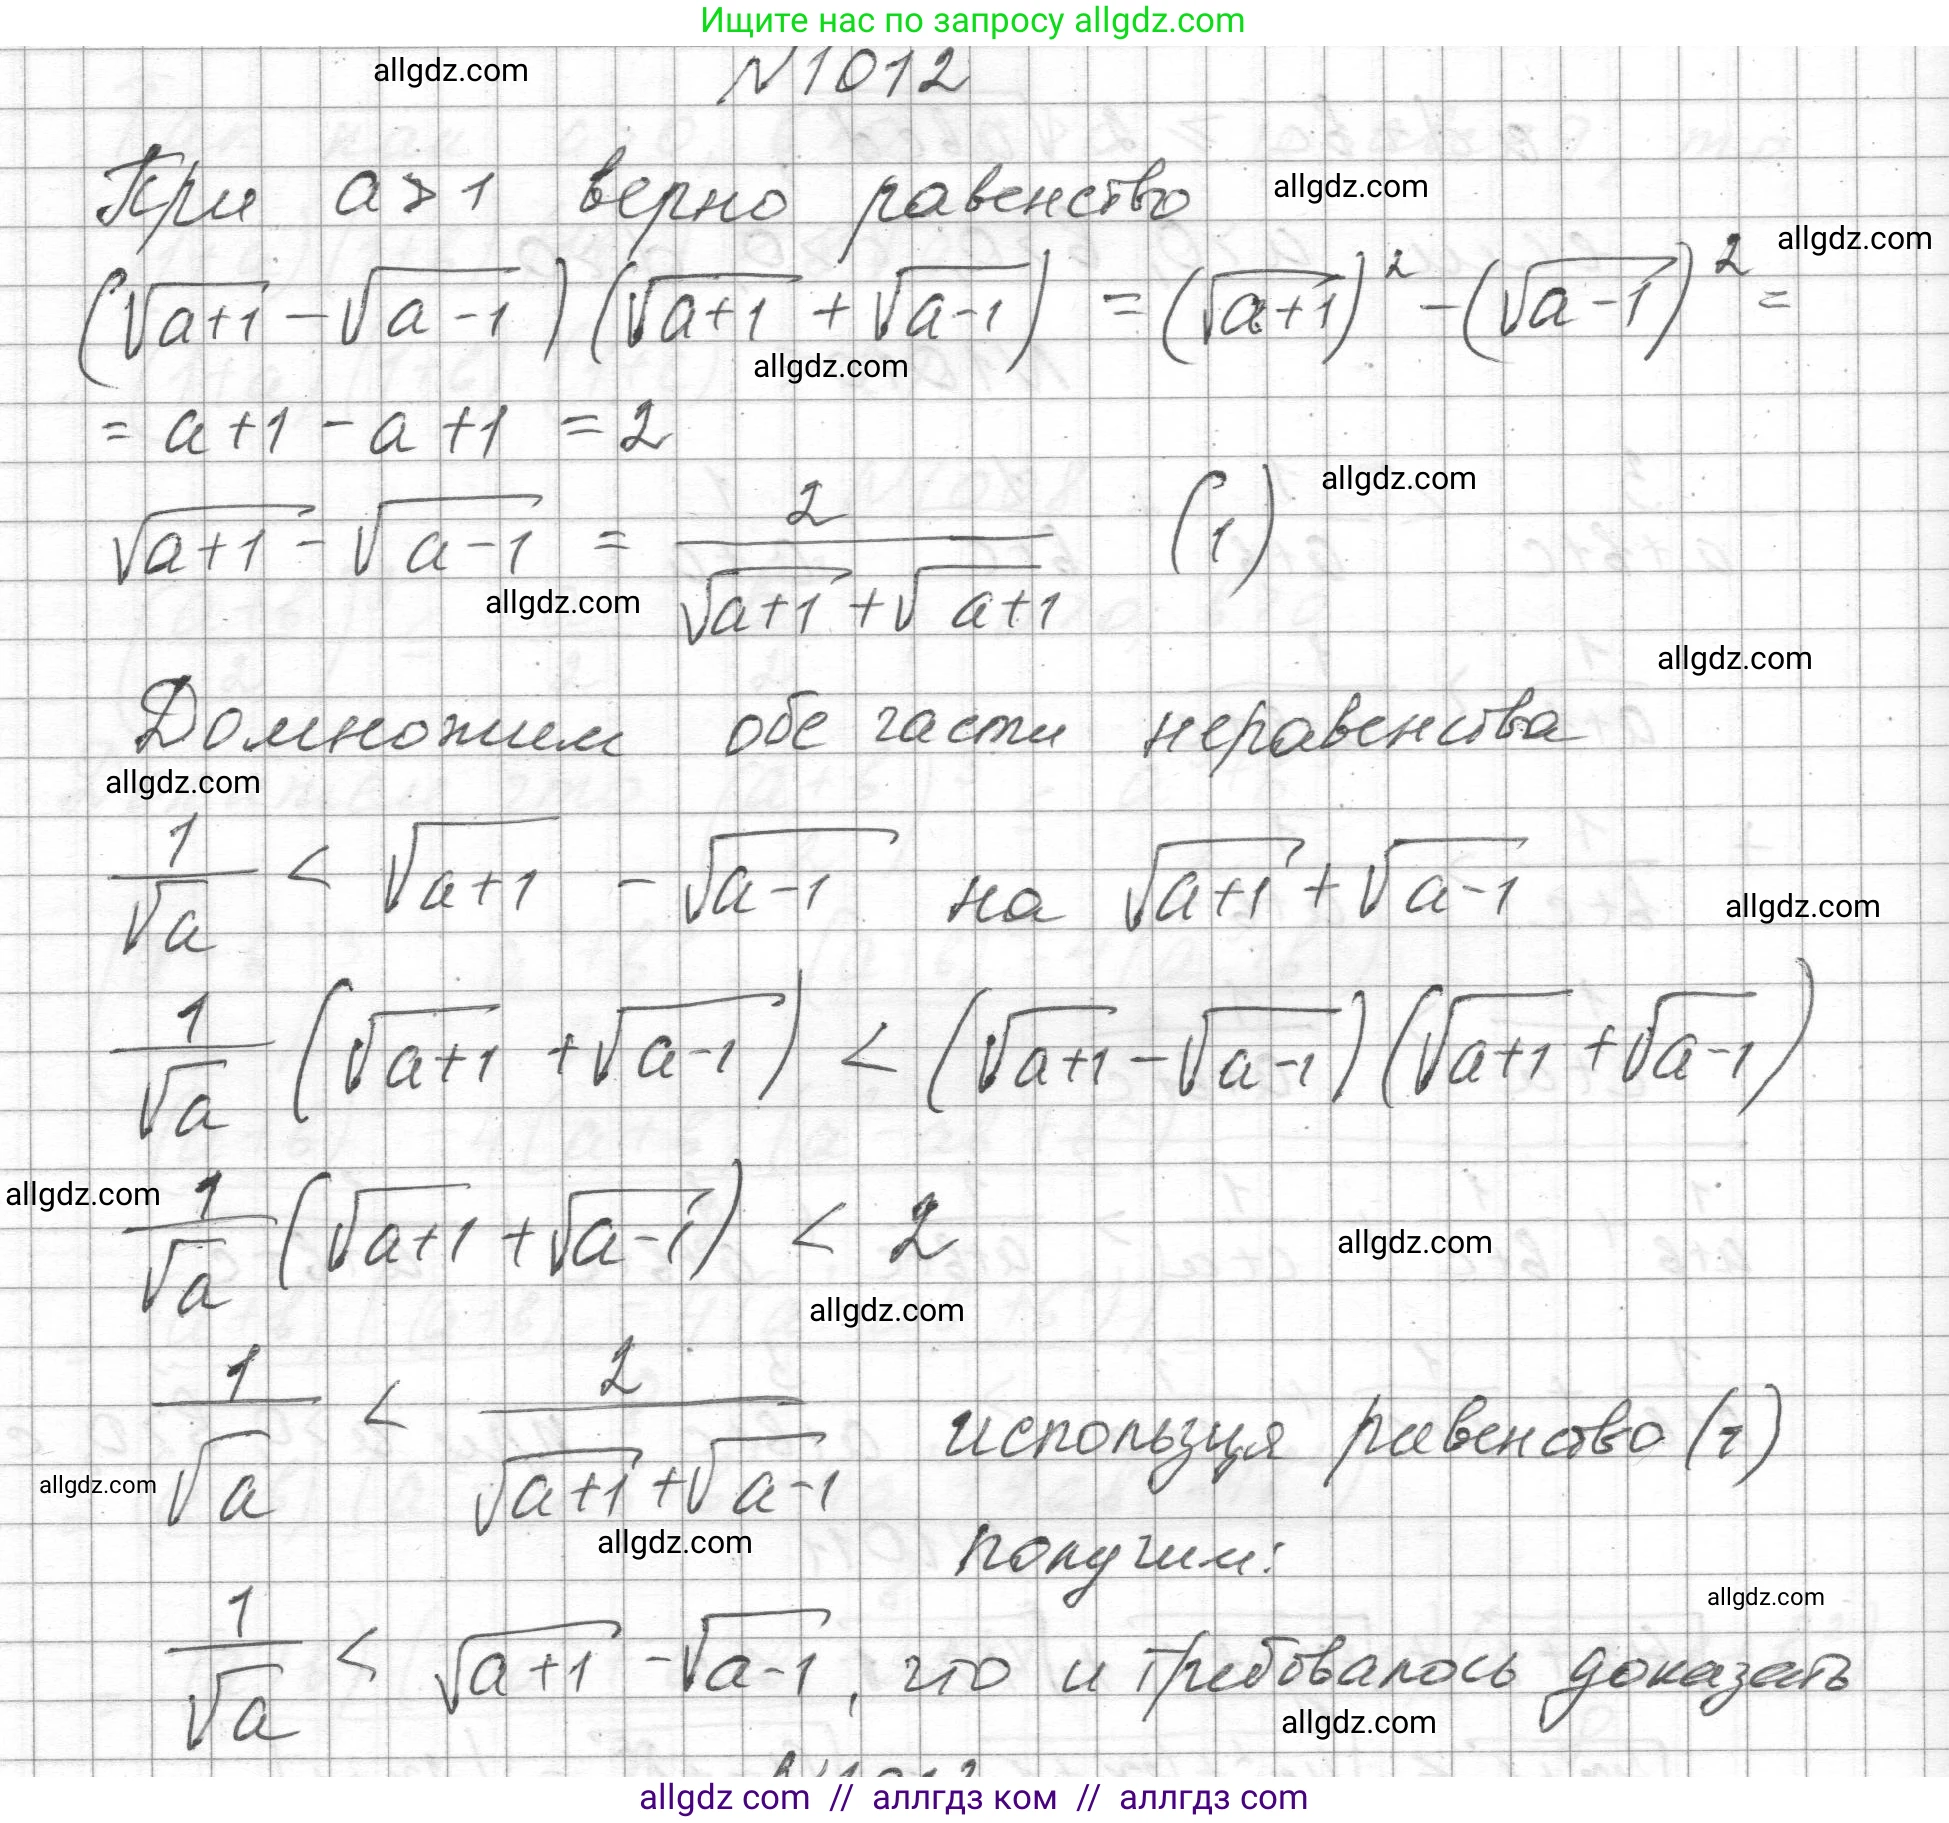 Ищите нас по запросу allgdz.com
allgdz.com
№1012
При a > 1 верно равенство
allgdz.com
allgdz.com
(√(a+1) - √(a-1)) (√(a+1) + √(a-1)) = (√(a+1))² - (√(a-1))² =
allgdz.com
= a+1 - a+1 = 2
√(a+1) - √(a-1) = 2/(√(a+1) + √(a+1)) (1)
allgdz.com
allgdz.com
allgdz.com
Домножим обе части неравенства
allgdz.com
1/√a < √(a+1) - √(a-1) на √(a+1) + √(a-1)
allgdz.com
1/√a (√(a+1) + √(a-1)) < (√(a+1) - √(a-1)) (√(a+1) + √(a-1))
allgdz.com
1/√a (√(a+1) + √(a-1)) < 2
allgdz.com
allgdz.com
1/√a < 2/(√(a+1) + √(a-1)) используя равенство (1)
allgdz.com
allgdz.com
получим:
allgdz.com
1/√a < √(a+1) - √(a-1), что и требовалось доказать
allgdz.com
allgdz com // аллгдз ком // аллгдз com